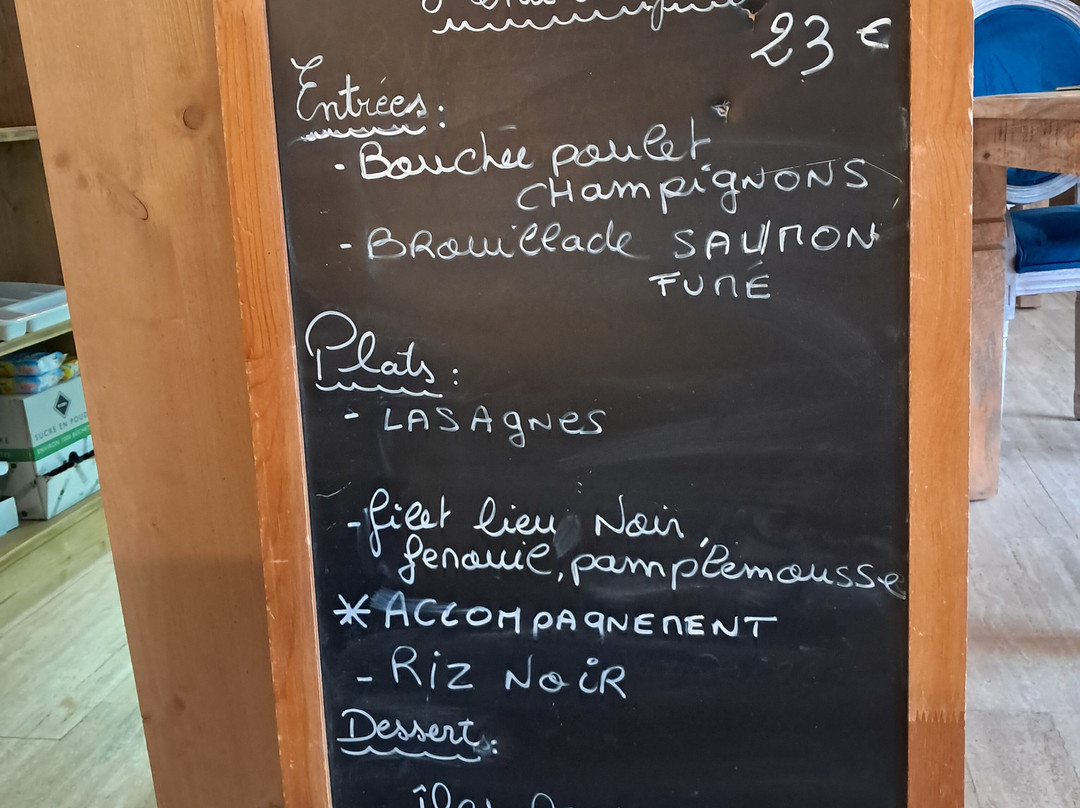 23 €
Entrées :
- Bouchée poulet
CHAmpigNONS
- BRouillade SAUMON
FUMÉ
Plats :
- LASAgNes
- filet lieu Noir,
fenouil, pamplemousse
* ACCOMPAGNEMENT
- RIZ NOIR
Dessert :
SUCRE EN POUD